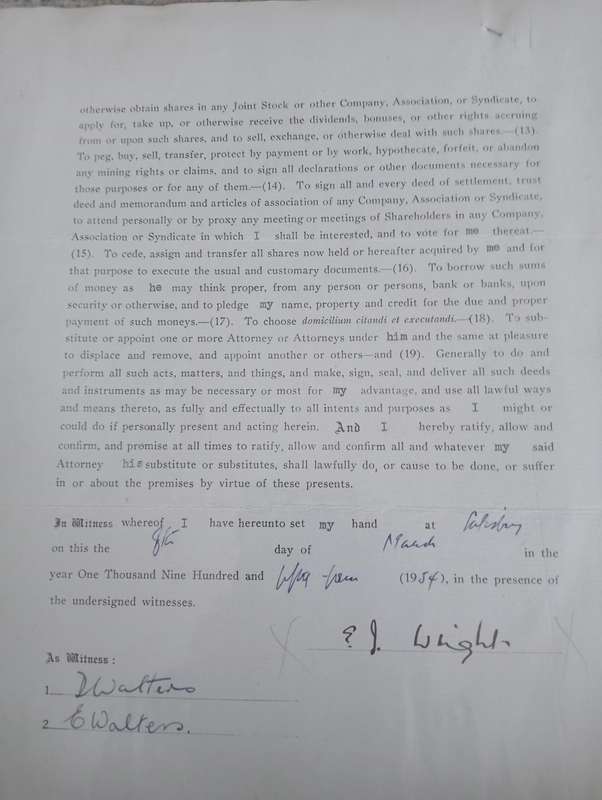 otherwise obtain shares in any Joint Stock or other Company, Association, or Syndicate, to
apply for, take up, or otherwise receive the dividends, bonuses, or other rights accruing
from or upon such shares, and to sell, exchange, or otherwise deal with such shares.—(13).
To peg, buy, sell, transfer, protect by payment or by work, hypothecate, forfeit, or abandon
any mining rights or claims, and to sign all declarations or other documents necessary for
those purposes or for any of them.—(14). To sign all and every deed of settlement, trust
deed and memorandum and articles of association of any Company, Association or Syndicate,
to attend personally or by proxy any meeting or meetings of Shareholders in any Company,
Association or Syndicate in which I shall be interested, and to vote for me thereat.—
(15). To cede, assign and transfer all shares now held or hereafter acquired by me and for
that purpose to execute the usual and customary documents.—(16). To borrow such sums
of money as he may think proper, from any person or persons, bank or banks, upon
security or otherwise, and to pledge my name, property and credit for the due and proper
payment of such moneys.—(17). To choose domicilium citandi et executandi.—(18). To sub-
stitute or appoint one or more Attorney or Attorneys under him and the same at pleasure
to displace and remove, and appoint another or others—and (19). Generally to do and
perform all such acts, matters, and things, and make, sign, seal, and deliver all such deeds
and instruments as may be necessary or most for my advantage, and use all lawful ways
and means thereto, as fully and effectually to all intents and purposes as I might or
could do if personally present and acting herein. And I hereby ratify, allow and
confirm, and promise at all times to ratify, allow and confirm all and whatever my said
Attorney his substitute or substitutes, shall lawfully do, or cause to be done, or suffer
in or about the premises by virtue of these presents.
In Witness whereof I have hereunto set my hand at Salisbury
on this the 8th day of March in the
year One Thousand Nine Hundred and fifty-four (1954), in the presence of
the undersigned witnesses.
E J. Wright
As Witness:
1. D Walters
2 E Walters.